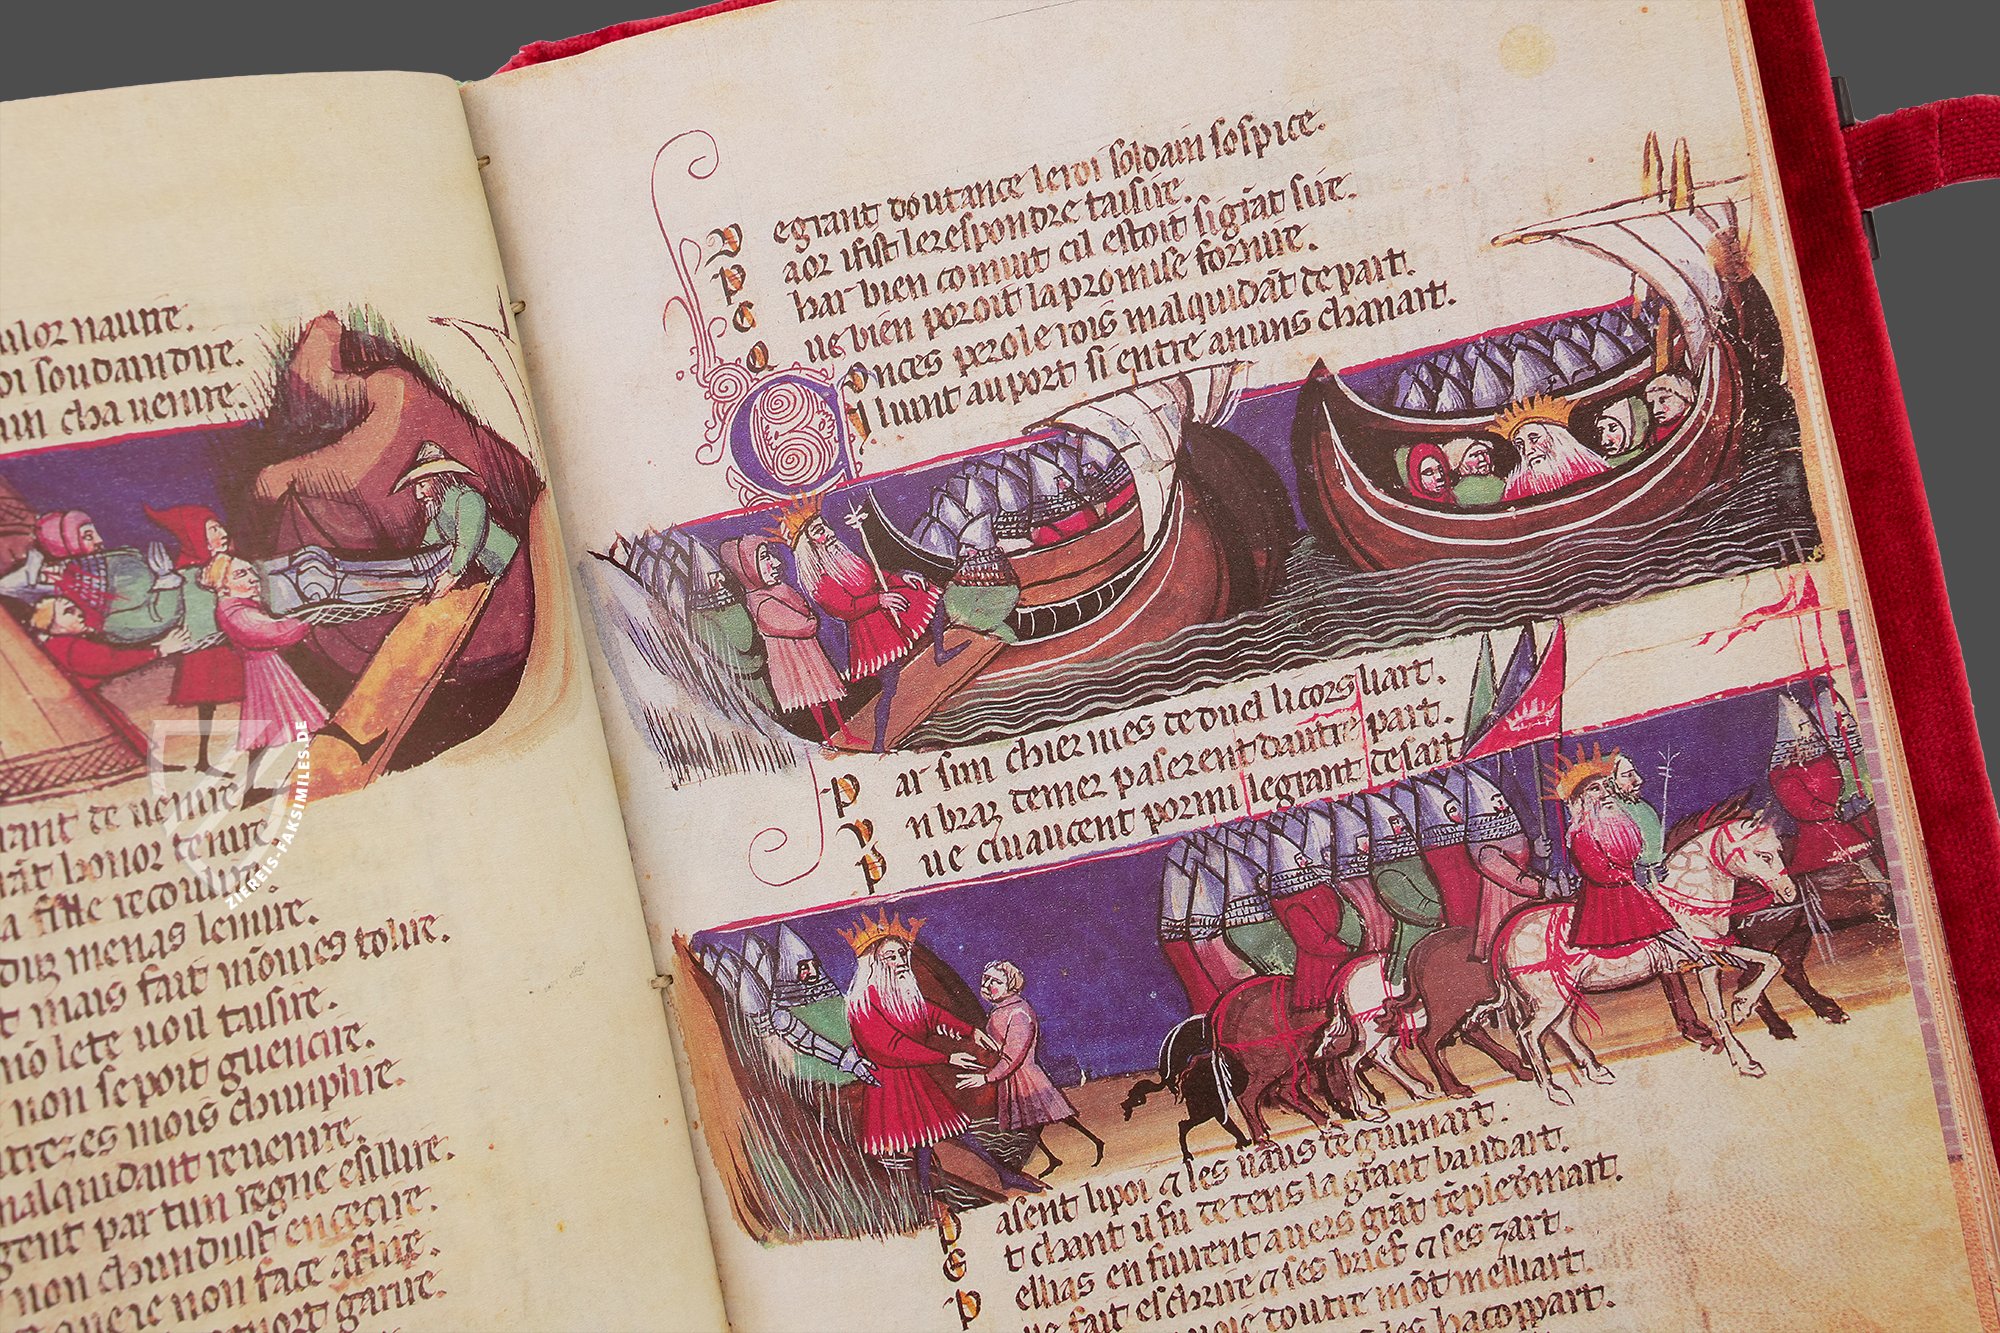 ulor nautre.
oi soudain dire.
un cha uenire.
rant de uenire
rāt honor tenire
a fille recoulire
diz menas lemire.
t mais fait mōmes tolire.
mō lete uoil tusire.
non se poit guencire.
trez es mois chinplire.
malquidant reuenire.
gent par tun regne esillire.
non chundust encecire.
non face aflire.
mort garire.
V egrant doutance le roi soldain sospire.
P aor ifist le respondre taisire.
C har bien comuit cil estoit si grāt sire.
Q ue bien poroit la promise fornire.
Onces perole rois malquidāt de part.
Il uint au port si entre anuns chanart.
P ar sim chier mes de duel li cors li art.
V n braz de mer paserent dautre part.
P ue ciuaucent por mi le grant desart
P asent li poi ⁊ les uāus de guimart.
E t chant il fu de dens la grant baudart.
P ellias en fuirent auers grāt tēple dmart.
ue fait eschrire ⁊ ses brief ⁊ ses zart.
uoie toutre mōt melliart.
les hacoppart.
ZIEREIS-FAKSIMILES.DE